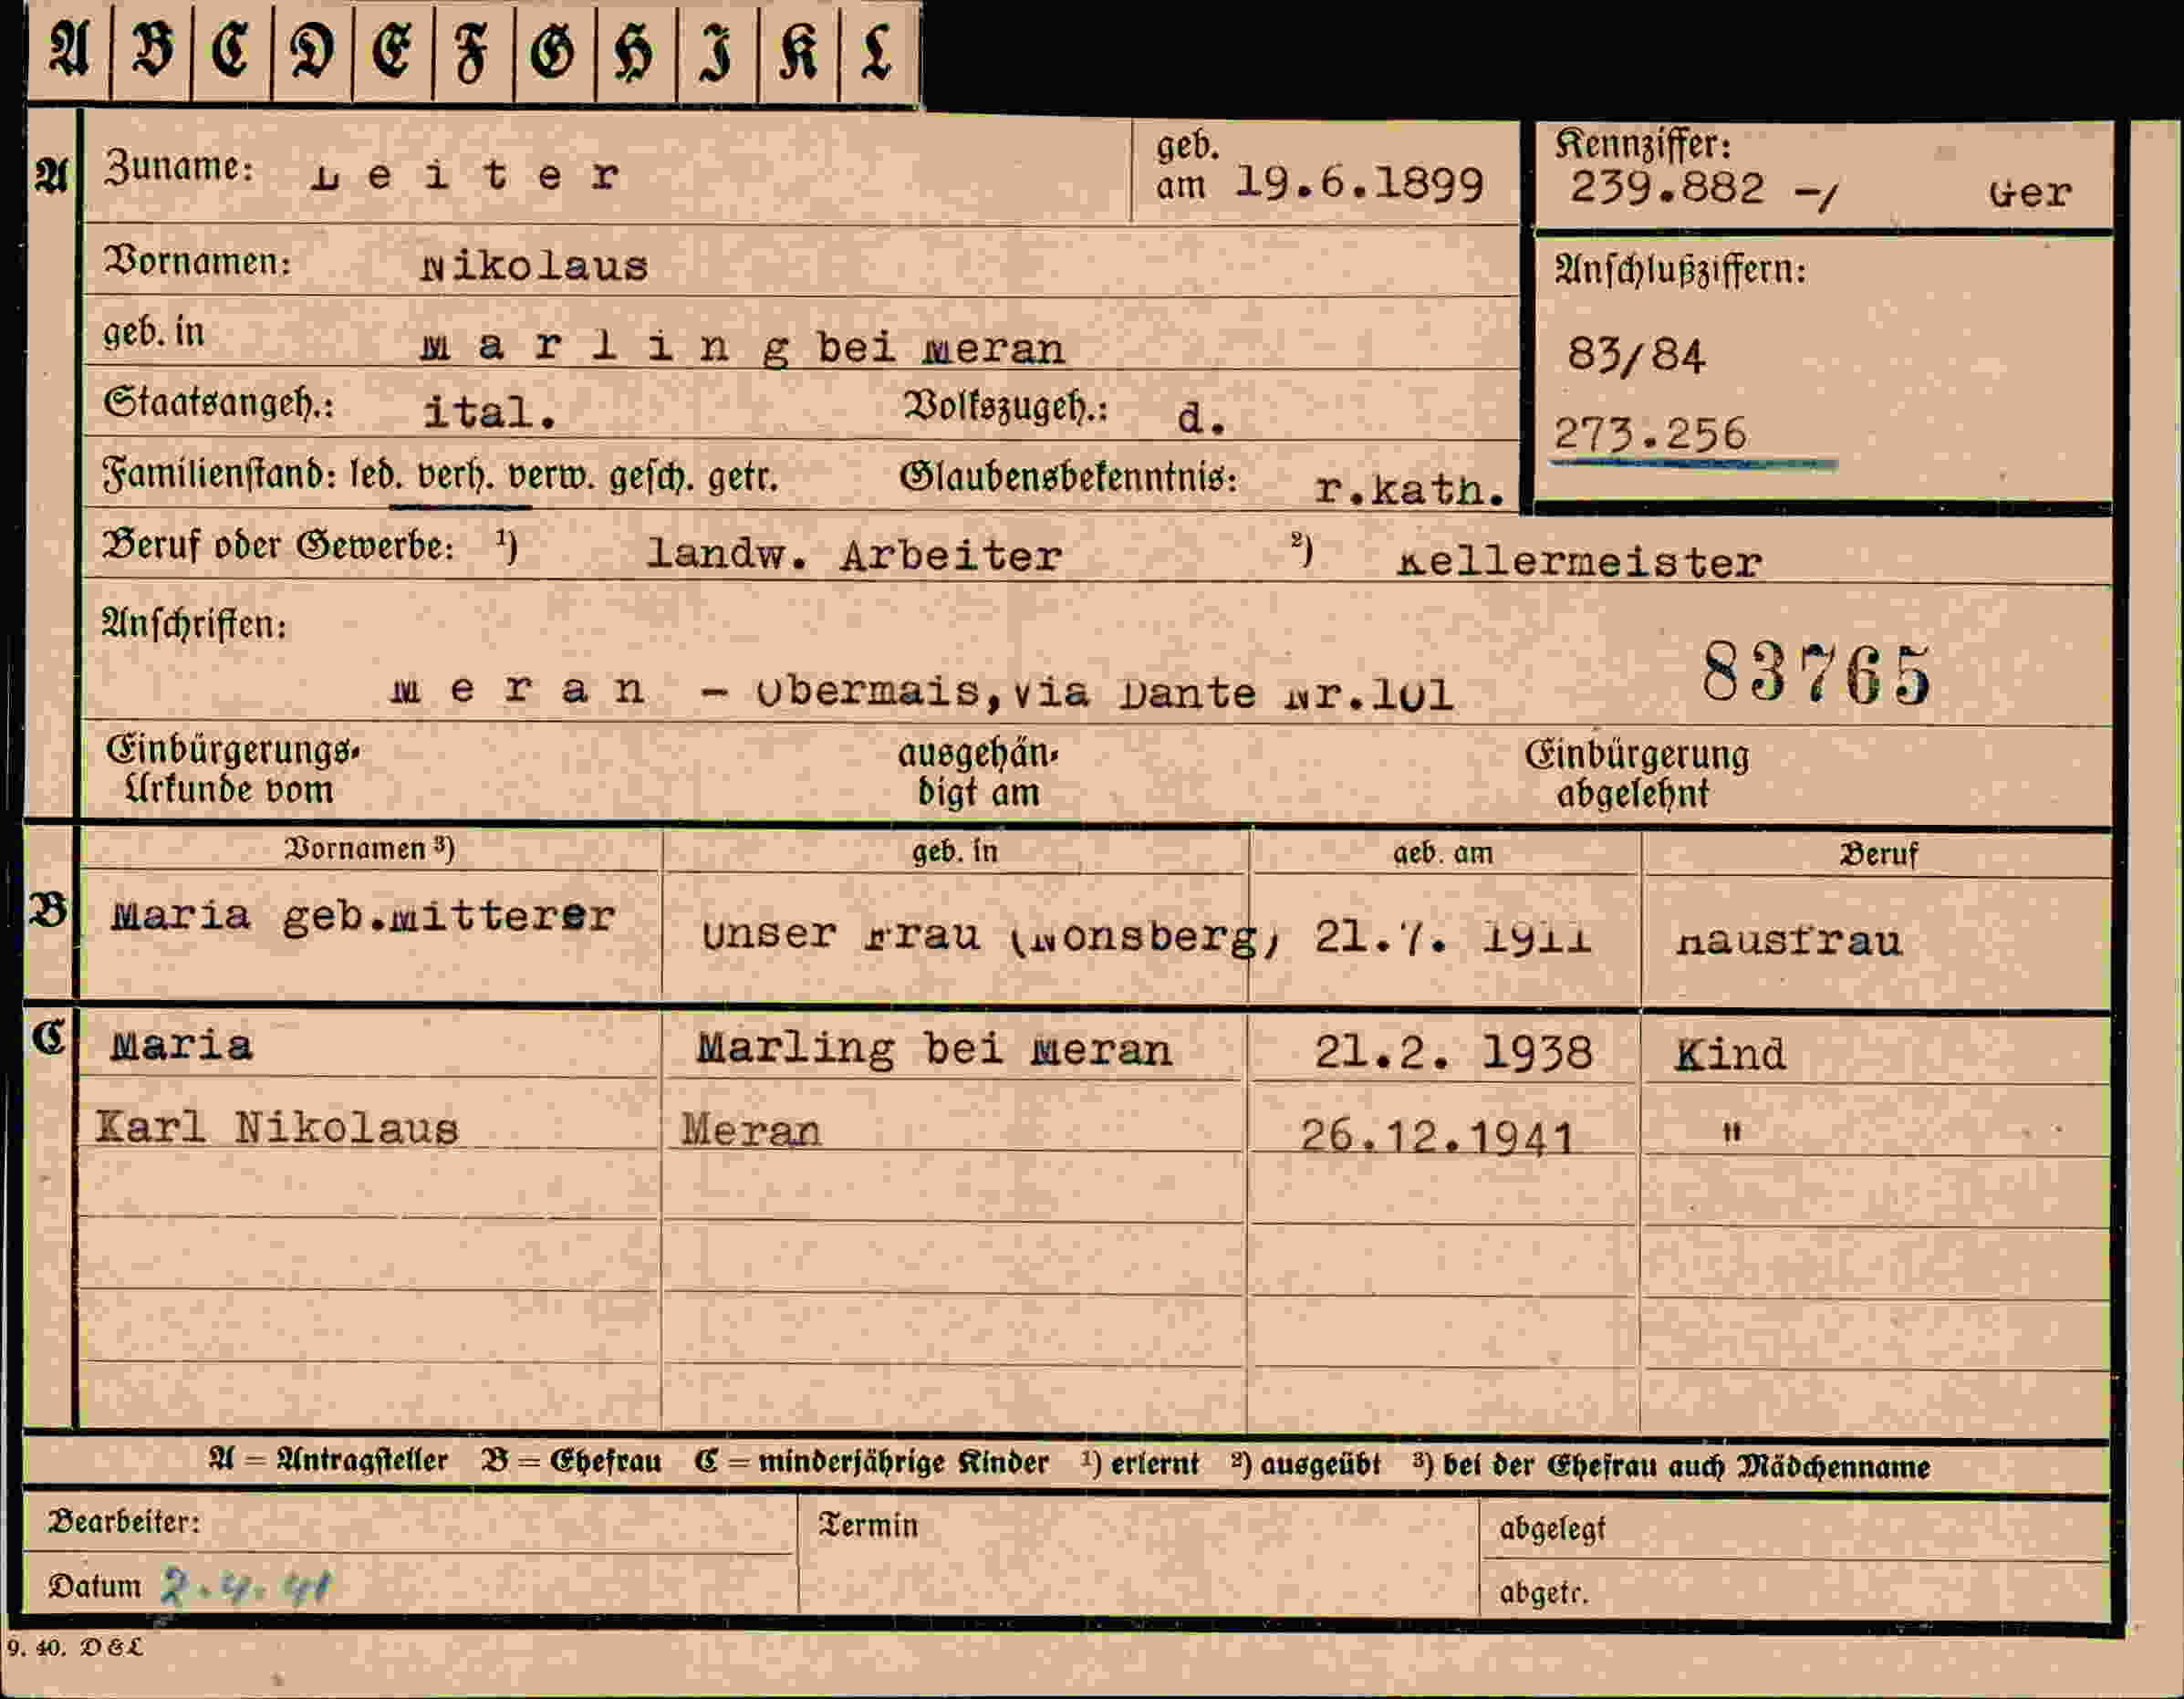 A B C D E F G H I K L
A Zuname: Leiter geb. am 19.6.1899
Kennziffer: 239.882 -/ Ger
Vornamen: Nikolaus
Anschlußziffern:
geb. in Marling bei Meran
83/84
Staatsangeh.: ital. Volkszugeh.: d.
273.256
Familienstand: led. verh. verw. gesch. getr. Glaubensbekenntnis: r.kath.
Beruf oder Gewerbe: 1) landw. Arbeiter 2) Kellermeister
Anschriften:
83765
Meran - Obermais, via Dante Nr.101
Einbürgerungs- ausgehän- Einbürgerung
Urkunde vom digt am abgelehnt
Vornamen 3) geb. in geb. am Beruf
B Maria geb.Mitterer Unser Frau (Nonsberg) 21.7. 1911 Hausfrau
C Maria Marling bei Meran 21.2. 1938 Kind
Karl Nikolaus Meran 26.12.1941 "
A = Antragsteller B = Ehefrau C = minderjährige Kinder 1) erlernt 2) ausgeübt 3) bei der Ehefrau auch Mädchenname
Bearbeiter: Termin abgelegt
Datum 2.4.41 abgetr.
9. 40. D&L